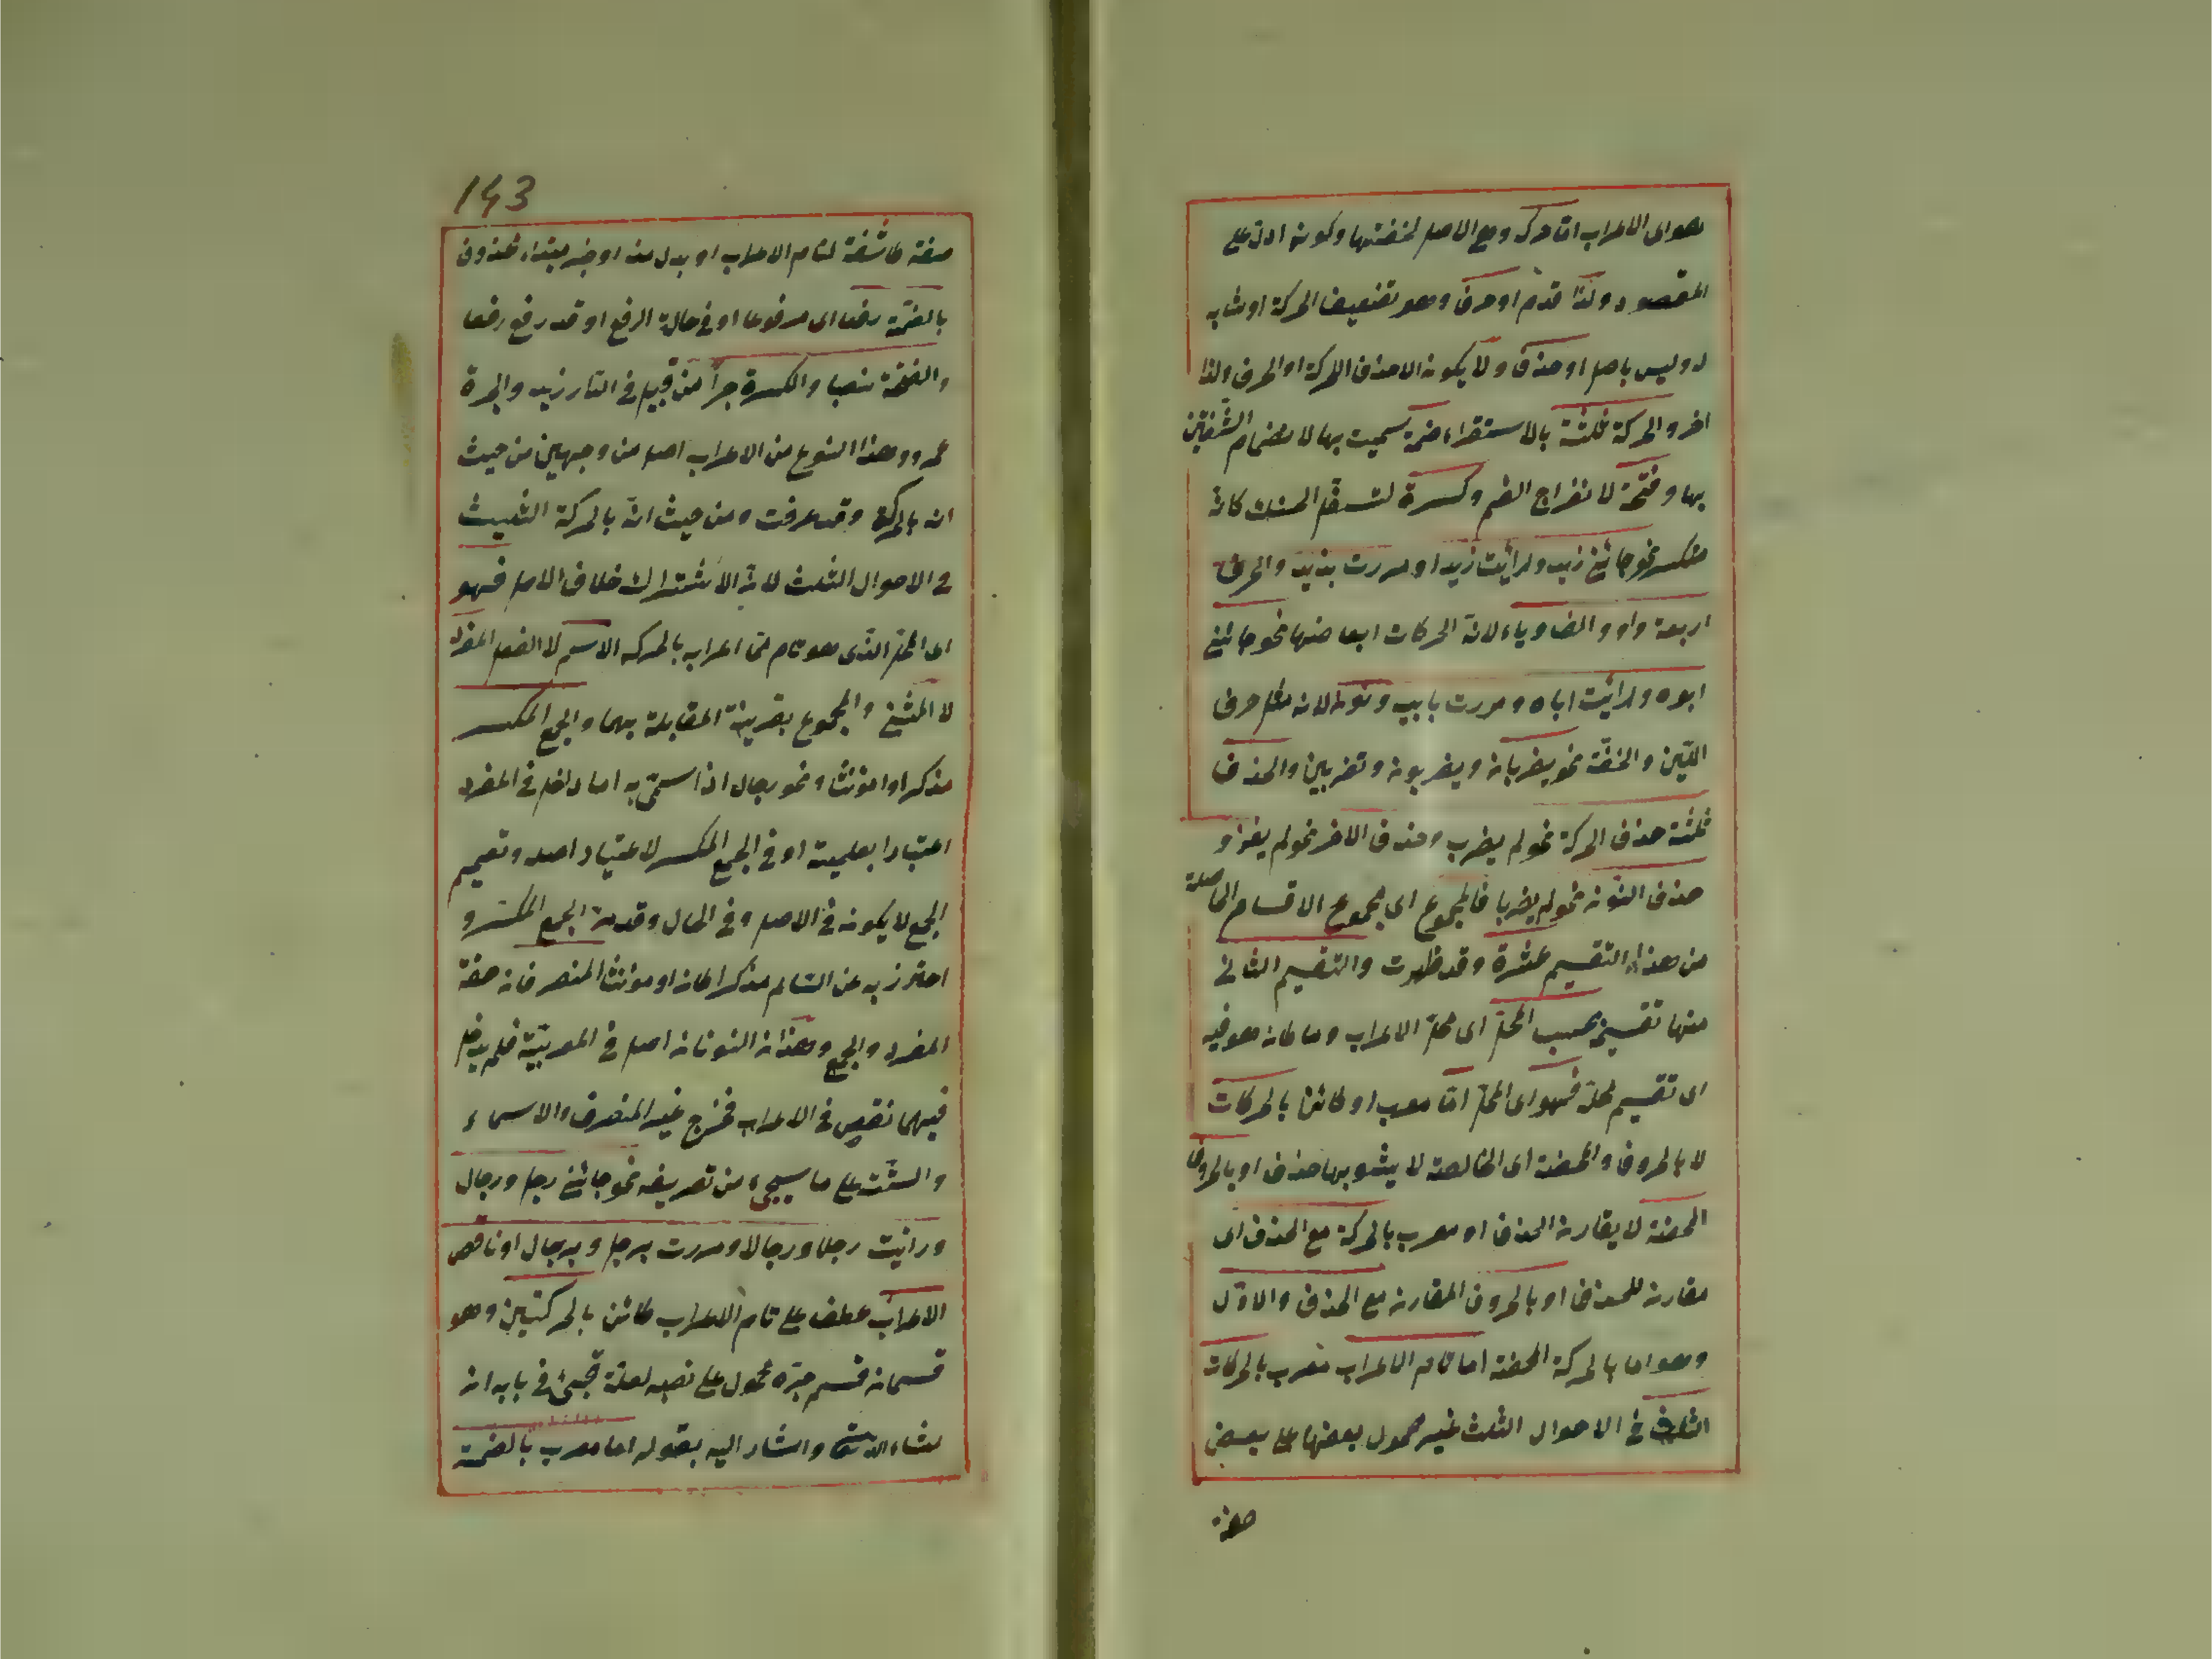 وهو اى الاعراب اما حركة وهى الاصل لخفتها وكونه ادل على
المقصود ولذا قدم او حرف وهو تضعيف الحركة او مشابه
له وليس باصل او حذف ولا يكون الا حذف الحركة او الحرف ولذا
اخر والحركة ثلثة بالاستقراء ضمة سميت بها لانضمام الشفتين
بها وفتحة لانفراج الفم وكسرة لتسفل الحنك كانه
منكسر نحو جائنى زيد ورايت زيدا ومررت بزيد والحرف
اربعة واو والف وياء لان الحركات ابعاضها نحو جائنى
ابوه ورأيت اباه ومررت بابيه ونون لانه مثل حرف
اللين والخفة نحو يضربان ويضربون وتضربين والحذف
ثلثة حذف الحركة نحو لم يضرب وحذف الاخر نحو لم يغز و
حذف النون نحو لم يضربا فالمجموع اى مجموع الاقسام الحاصلة
من هذا التقسيم عشرة وقد ظهرت والتقسيم الثانى
منها تقسيم بحسب المحل اى محل الاعراب وما كان هو فيه
اى تقسيم محله فهو اى المحل اما معرب او كائن بالحركات
لا بالحروف والمحضة اى الخالصة لا يشوبها حذف او بالحروف
المحضة لا يقارنه الحذف او معرب بالحركة مع الحذف اى
مقارنة للحذف او بالحروف المقارنة مع الحذف والاول
وهو اما بالحركة المحضة اما تام الاعراب معرب بالحركات
الثلث فى الاحوال الثلث غير محمول بعضها على بعض
صفة
143
صفة كاشفة لتام الاعراب او بدل منه او خبر مبتداء محذوف
بالضمة رفعا اى مرفوعا او فى حالة الرفع او قد رفع رفعا
والفتحة نصبا والكسرة جرا من قبيل فى الدار زيد والحجرة
عمرو وهذا النوع من الاعراب اصل من وجهين من حيث
انه بالحركة وقد عرفت ومن حيث انه بالحركة الثلث
فى الاحوال الثلث لان الاشتراك خلاف الاصل فهو
اى المحل الذى هو تام من اعرابه بالحركة الاسم لا الفعل المفرد
لا المثنى والمجموع بقرينة المقابلة بهما والجمع المكسر
مذكرا او مؤنثا ونحو رجال اذا سمى به اما داخل فى المفرد
اعتبارا بعلميته او فى الجمع المكسر لاعتبار اصله وتعميم
الجمع لا يكون فى الاصل وفى الحال وقد مر الجمع المكسر و
احترز به عن السالم مذكرا كان او مؤنثا المنصرفان صفة
المفرد والجمع وهذان النوعان اصل فى المعربية فلم يدخل
فيهما نقص فى الاعراب فخرج غير المنصرف والاسماء
والستة على ما سيجىء من تعريفه نحو جائنى رجل ورجال
ورأيت رجلا ورجالا ومررت برجل وبرجال او ناقص
الاعراب عطف على تام الاعراب كائن بالحركتين وهو
قسمان قسم جره محمول على نصبه لعلة تجئ فى بابه ان
شاء الله تعالى واشار اليه بقوله اما معرب بالضمة